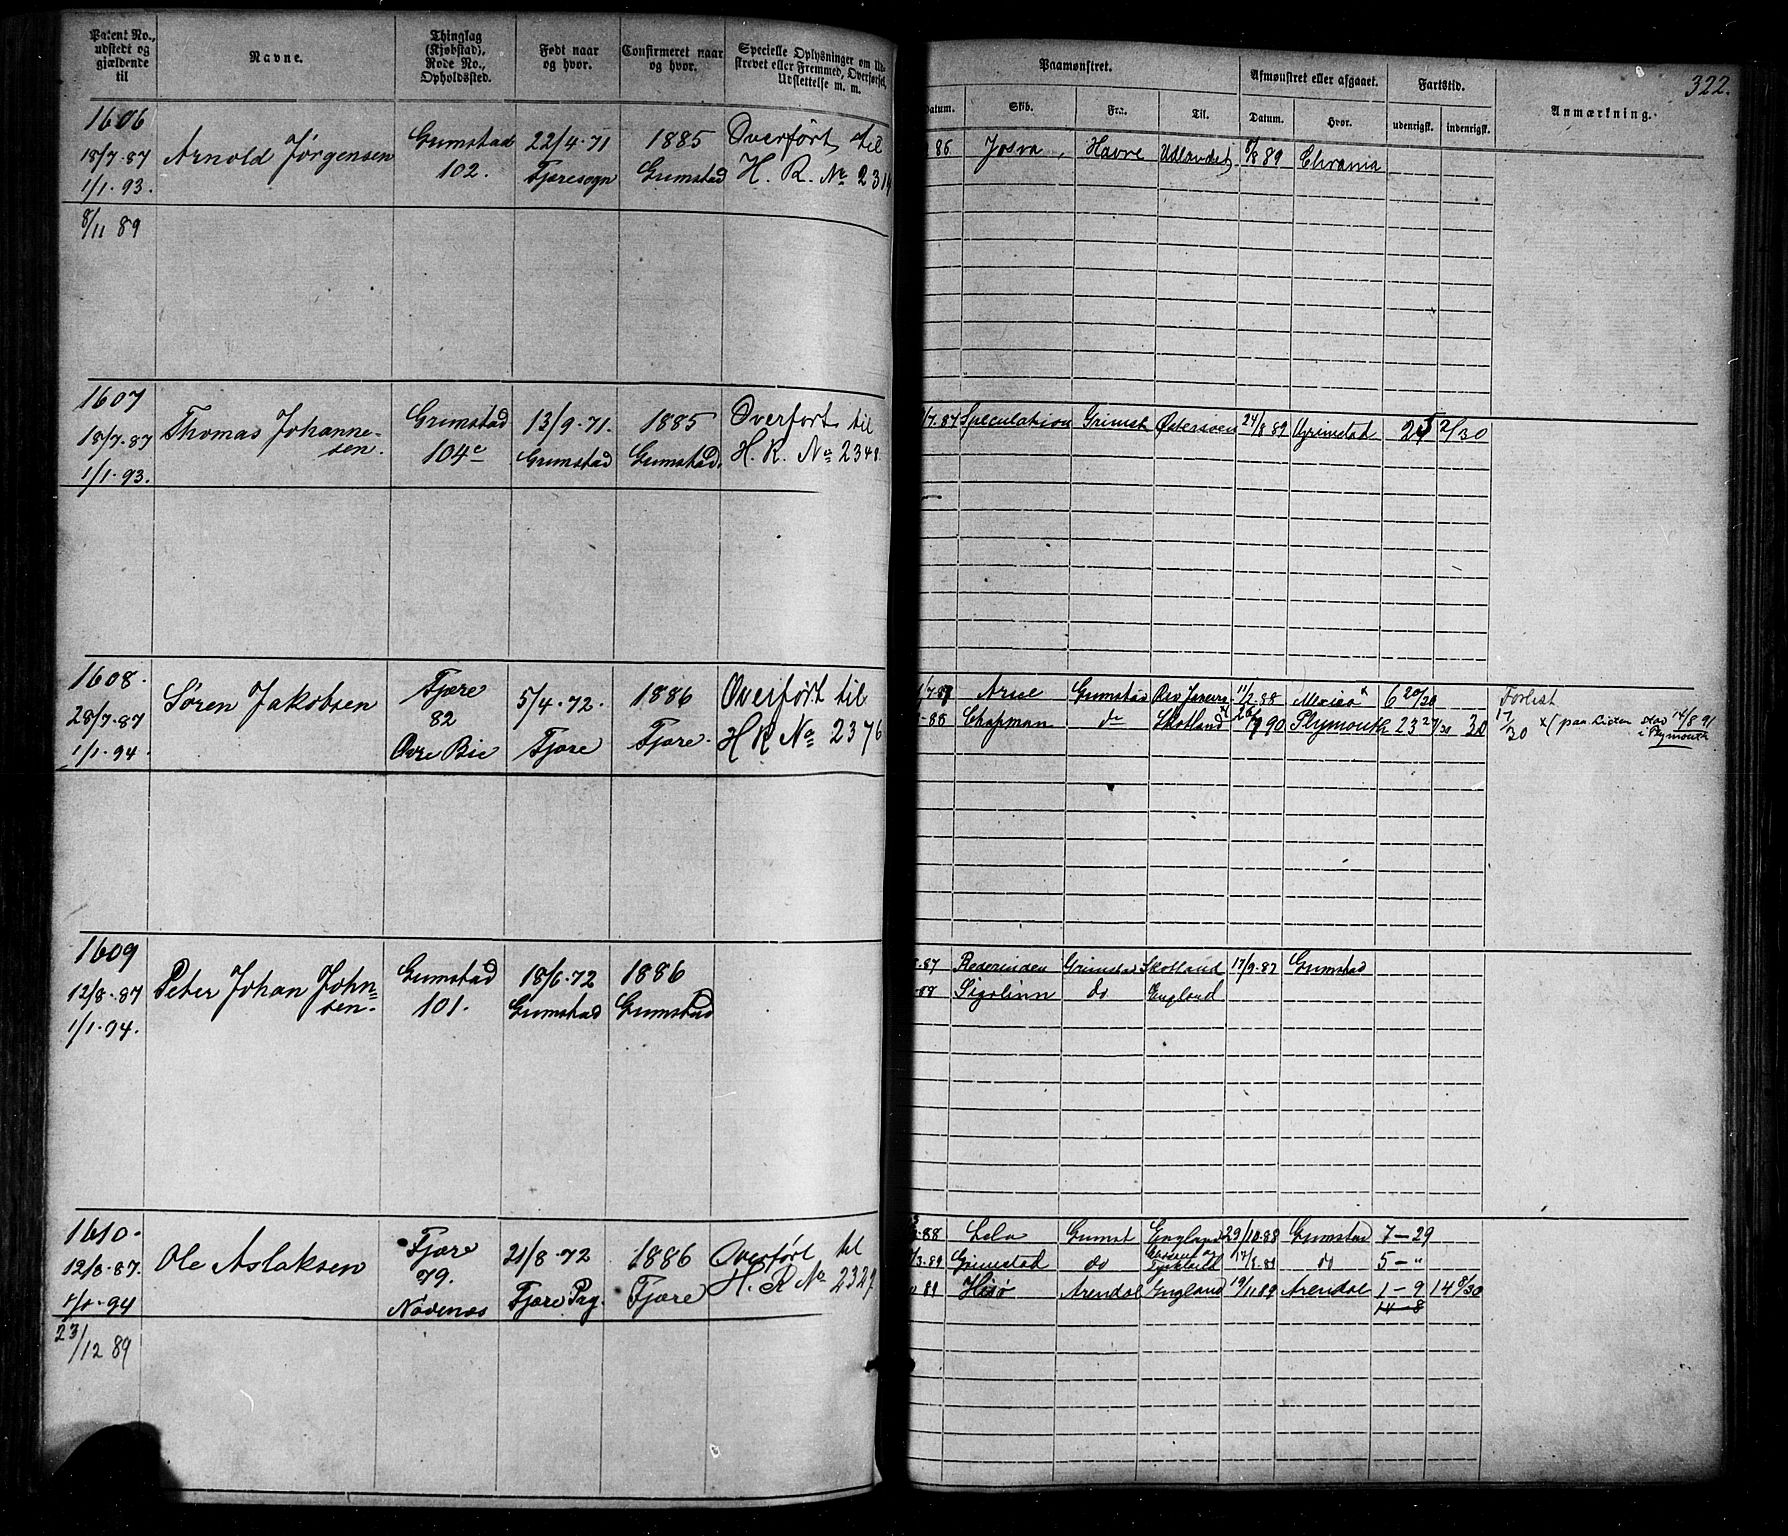 Patent No.,
udstedt og
gjældende
til
Navne.
Thinglag
(Kjøbstad),
Rode No.,
Opholdssted.
Født naar
og hvor.
Confirmeret naar
og hvor.
Specielle Oplysninger om Ud-
skrevet eller Fremmed, Overførsel,
Udslettelse m. m.
1606
18/7·87
1/1·93.
8/11 89
Arnold Jørgensen
Grimstad
102.
22/4·71
Fjæresogn
1885
Grimstad
Overført til
H. R. No 231
1607
18/7·87
1/1·93.
Thomas Johanne-
sen.
Grimstad
104c
13/9·71.
Grimstad
1885
Grimstad.
Overført til
H. R. No 2348.
1608.
28/7·87
1/1·94.
Søren Jakobsen
Fjære
82
Øvre Bie
5/4·72.
Fjære
1886
Fjære.
Overført til
H R No 2376
1609
12/8·87
1/1·94.
Peter Johan John=
sen.
Grimstad
101.
18/6·72
Grimstad
1886
Grimstad
1610.
12/8·87.
1/1·94
23/12 89
Ole Aslaksen
Fjære
79.
Nødenes
21/8·72
Fjære Prg.
1886
Fjære
Overført til
H. R No 2327
322.
Paamønstret.
Afmønstret eller afgaaet.
Fartstid.
Anmærkning.
Datum.
Skib.
Fra.
Til.
Datum.
Hvor.
udenrigsk.
indenrigsk.
86 Josva Havre Udlandet 6/8 89 Chrania
/7.87 Speculation Grimst Østersøen 24/8 89 Grimstad 25 2/30
/7.87 Arie Grimstad 11/2.88 Mexico x 6 20/30 Forlist
88 Chapman do Skotland x 90 Plymouth 23 30 17/30 x/ paa Siden 14/8 91
i Plymouth
8.87 Rederinden Grimstad Skotland 17/9.87 Grimstad
Sigolinn do England
88 Lela Grimst England 29/10.88 Grimstad 7–29
/3.89 Grimstad do 17/8.89 do 5–"
89 Hisø Arendal England 19/11 89 Arendal 1–9 14 8/30
14–8